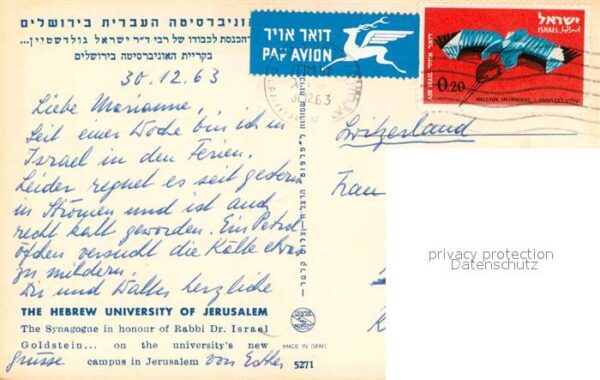 האוניברסיטה העברית בירושלים
הכנסת לכבודו של רבי ד״ר ישראל גולדשטיין...
בקריית האוניברסיטה בירושלים
דואר אויר
PAR AVION
ישראל
ISRAEL
דואר אויר
AIR MAIL
0.20
HALCYON SMYRNENSIS
30.12.63
Switzerland
Liebe Marianne,
Seit einer Woche bin ich in
Israel in den Ferien.
Leider regnet es seit gestern
in Strömen und ist auch
recht kalt geworden. Ein Petrol
öfchen versucht die Kälte etwas
zu mildern.
Dir und Walter herzliche
Frau
privacy protection
Datenschutz
THE HEBREW UNIVERSITY OF JERUSALEM
The Synagogue in honour of Rabbi Dr. Israel
Goldstein... on the university's new
campus in Jerusalem
grüsse von Esther
MADE IN ISRAEL
5271